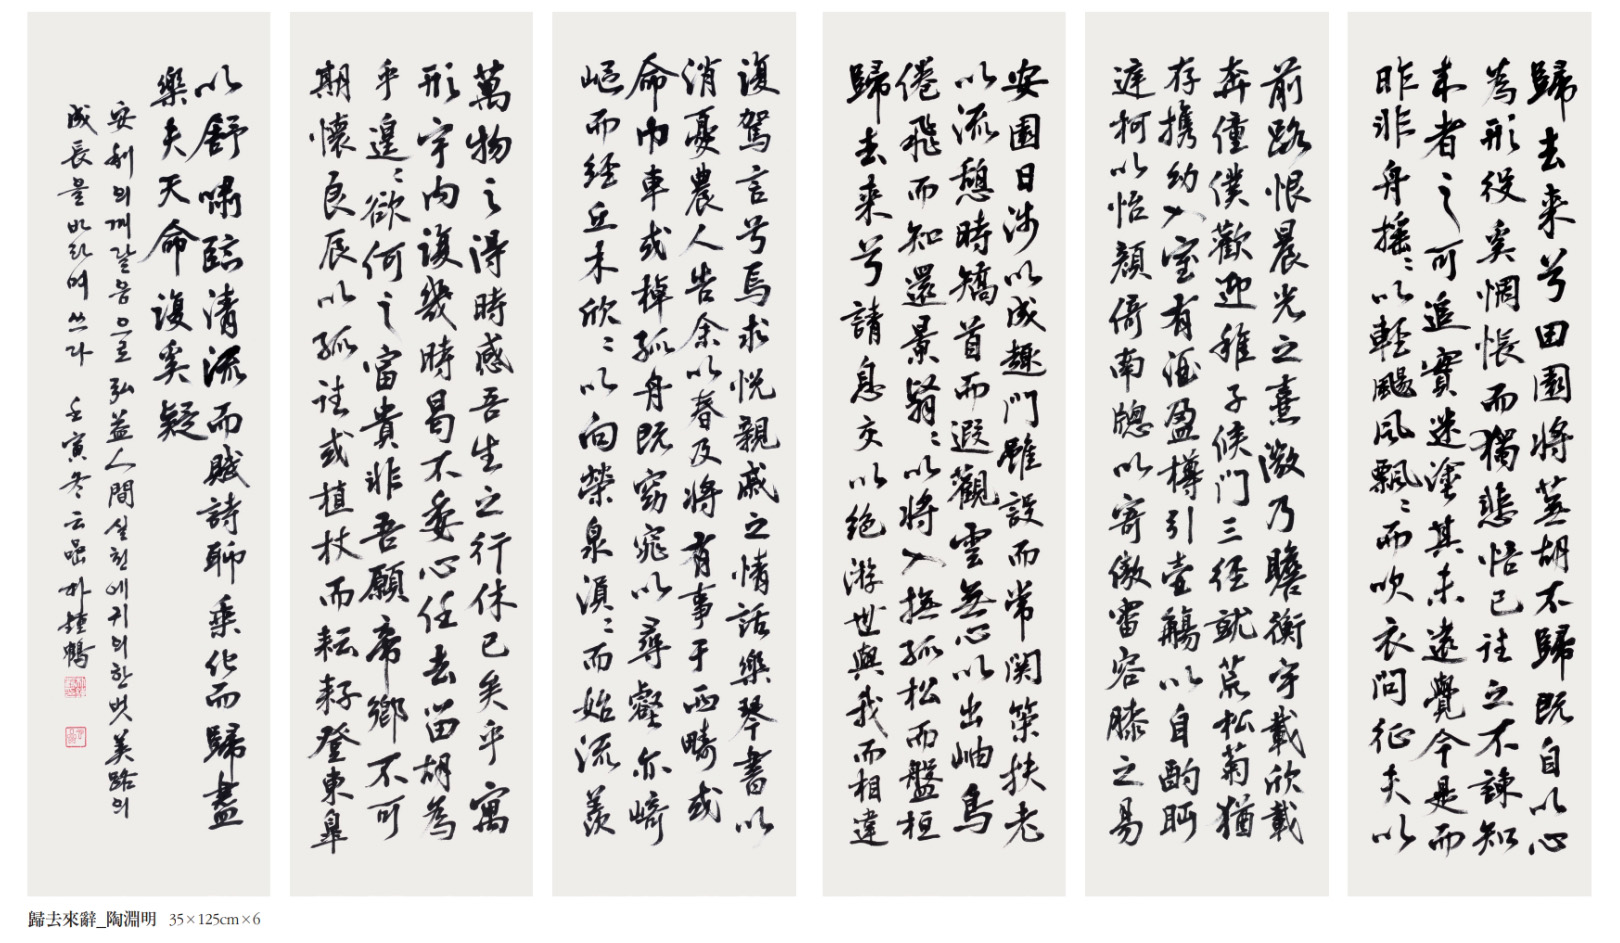 歸去来兮田園将蕪胡不歸既自以心
為形役奚惆悵而獨悲悟已往之不諫知
来者之可追實迷塗其未遠覺今是而
昨非舟搖〻以輕颺風飄〻而吹衣問征夫以
前路恨晨光之熹微乃瞻衡宇載欣載
奔僮僕歡迎稚子候門三径就荒松菊猶
存携幼入室有酒盈樽引壺觴以自酌眄
庭柯以怡顔倚南牕以寄傲審容膝之易
安園日涉以成趣門雖設而常関策扶老
以流憩時矯首而遐觀雲無心以出岫鳥
倦飛而知還景翳〻以将入撫孤松而盤桓
歸去来兮請息交以絶游世與我而相違
復駕言兮焉求悦親戚之情話樂琴書以
消憂農人告余以春及将有事于西疇或
命巾車或棹孤舟既窈窕以尋壑亦崎
嶇而経丘木欣〻以向榮泉涓〻而始流羨
萬物之得時感吾生之行休已矣乎寓
形宇内復幾時曷不委心任去留胡為
乎遑〻欲何之富貴非吾願帝鄉不可
期懷良辰以孤往或植杖而耘耔登東皐
以舒嘯臨清流而賦詩聊乘化而歸盡
樂夫天命復奚疑
安利의 깨달음으로 弘益人間 실천에 귀의한 벗 美路의
成長을 바라며 쓰다 壬寅冬 云 朴鍾鶴
歸去來辭_陶淵明 35×125cm×6